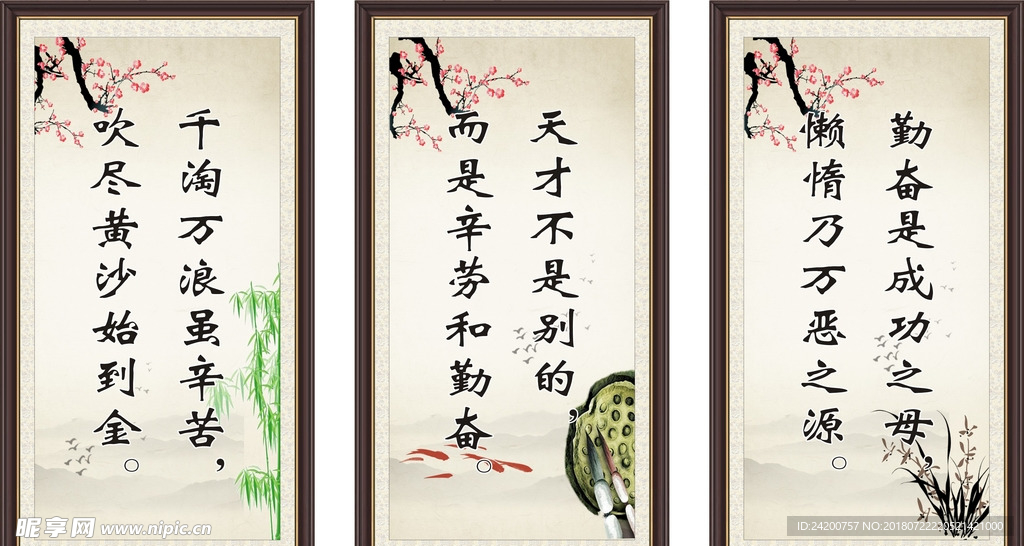 千淘万浪虽辛苦，
吹尽黄沙始到金。
天才不是别的，
而是辛劳和勤奋。
勤奋是成功之母，
懒惰乃万恶之源。
昵享网 www.nipic.cn
ID:24200757 NO:20180722220521421000